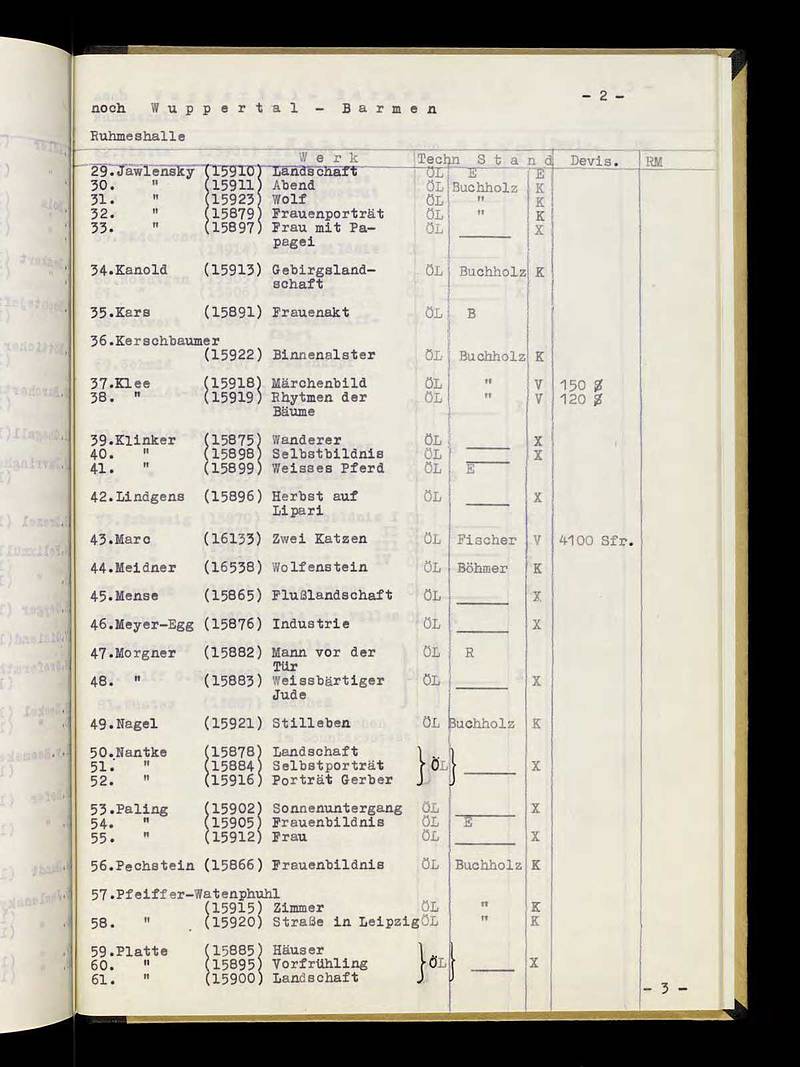 - 2 -
noch Wuppertal - Barmen
Ruhmeshalle
Werk Techn Stand Devis. RM
29.Jawlensky (15910) Landschaft ÖL E E
30. " (15911) Abend ÖL Buchholz K
31. " (15923) Wolf ÖL " K
32. " (15879) Frauenporträt ÖL " K
33. " (15897) Frau mit Pa- ÖL ______ X
papagei
34.Kanold (15913) Gebirgsland- ÖL Buchholz K
schaft
35.Kars (15891) Frauenakt ÖL B
36.Kerschbaumer
(15922) Binnenalster ÖL Buchholz K
37.Klee (15918) Märchenbild ÖL " V 150 $
38. " (15919) Rhytmen der ÖL " V 120 $
Bäume
39.Klinker (15875) Wanderer ÖL ______ X
40. " (15898) Selbstbildnis ÖL ______ X
41. " (15899) Weisses Pferd ÖL E
42.Lindgens (15896) Herbst auf ÖL ______ X
Lipari
43.Marc (16133) Zwei Katzen ÖL Fischer V 4100 Sfr.
44.Meidner (16538) Wolfenstein ÖL Böhmer K
45.Mense (15865) Flußlandschaft ÖL ______ X
46.Meyer-Egg (15876) Industrie ÖL ______ X
47.Morgner (15882) Mann vor der ÖL R
Tür
48. " (15883) Weissbärtiger ÖL ______ X
Jude
49.Nagel (15921) Stilleben ÖL Buchholz K
50.Nantke (15878) Landschaft
51. " (15884) Selbstporträt } ÖL } ______ X
52. " (15916) Porträt Gerber
53.Paling (15902) Sonnenuntergang ÖL ______ X
54. " (15905) Frauenbildnis ÖL E
55. " (15912) Frau ÖL ______ X
56.Pechstein (15866) Frauenbildnis ÖL Buchholz K
57.Pfeiffer-Watenphuhl
(15915) Zimmer ÖL " K
58. " (15920) Straße in Leipzig ÖL " K
59.Platte (15885) Häuser
60. " (15895) Vorfrühling } ÖL } ______ X
61. " (15900) Landschaft
- 3 -